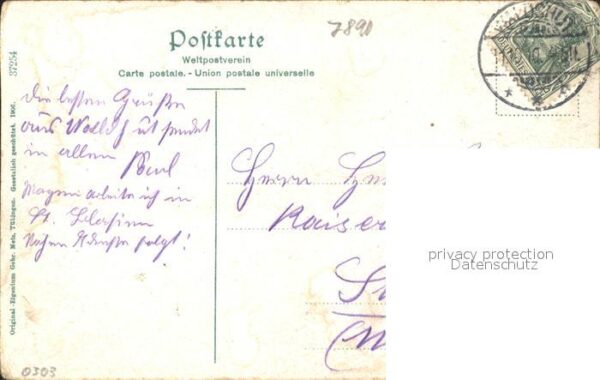 7890
Postkarte
Weltpostverein
Carte postale. - Union postale universelle
WALDSHUT
37254
Original-Eigentum Gebr. Metz, Tübingen. Gesetzlich geschützt. 1905.
Die besten Grüße
aus Waldshut sendet
in allem
Paul
Morgen arbeite ich in
St. Blasien
Nähere Adresse folgt!
Herrn
Kaiser
privacy protection
Datenschutz
0303